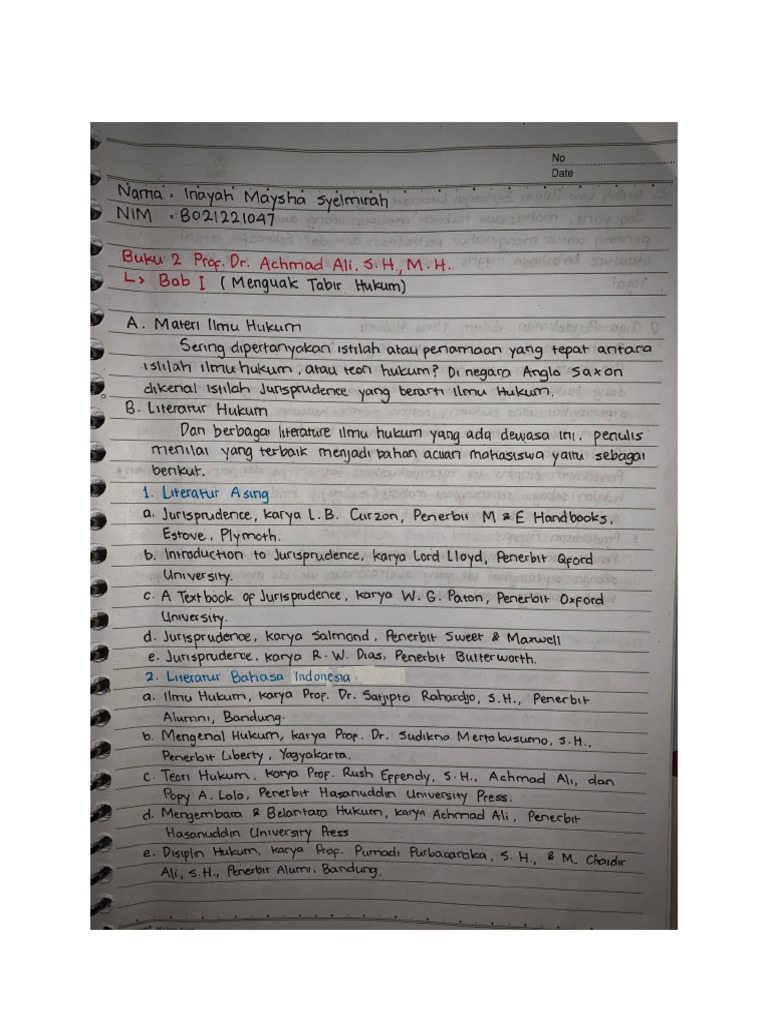 No
Date
Nama : Inayah Maysha Syelmirah
NIM : B021221047
Buku 2 Prof. Dr. Achmad Ali. S.H., M.H.
↳ Bab I (Menguak Tabir Hukum)
A. Materi Ilmu Hukum
Sering dipertanyakan istilah atau penamaan yang tepat antara
istilah ilmu hukum, atau teori hukum? Di negara Anglo Saxon
dikenal istilah Jurisprudence yang berarti Ilmu Hukum.
B. Literatur Hukum
Dari berbagai literature ilmu hukum yang ada dewasa ini. penulis
menilai yang terbaik menjadi bahan acuan mahasiswa yaitu sebagai
berikut.
1. Literatur Asing
a. Jurisprudence, karya L.B. Curzon, Penerbit M & E Handbooks,
Estove, Plymoth.
b. Introduction to Jurisprudence, karya Lord Lloyd, Penerbit Qford
University.
c. A Textbook of Jurisprudence, karya W. G. Paton, Penerbit Oxford
University.
d. Jurisprudence, karya Salmond, Penerbit Sweet & Maxwell
e. Jurisprudence, karya R. W. Dias, Penerbit Butterworth.
2. Literatur Bahasa Indonesia
a. Ilmu Hukum, karya Prof. Dr. Satjipto Rahardjo, S.H., Penerbit
Alumni, Bandung.
b. Mengenal Hukum, karya Prof. Dr. Sudikno Mertokusumo, S.H.,
Penerbit Liberty, Yogyakarta.
c. Teori Hukum, karya Prof. Rush Effendy, S.H., Achmad Ali, dan
Popy A. Lolo, Penerbit Hasanuddin University Press.
d. Mengembara & Belantara Hukum, karya Achmad Ali, Penerbit
Hasanuddin University Press
e. Disiplin Hukum, karya Prof. Purnadi Purbacaroka, S.H., & M. Chaidir
Ali, S.H., Penerbit Alumi, Bandung.